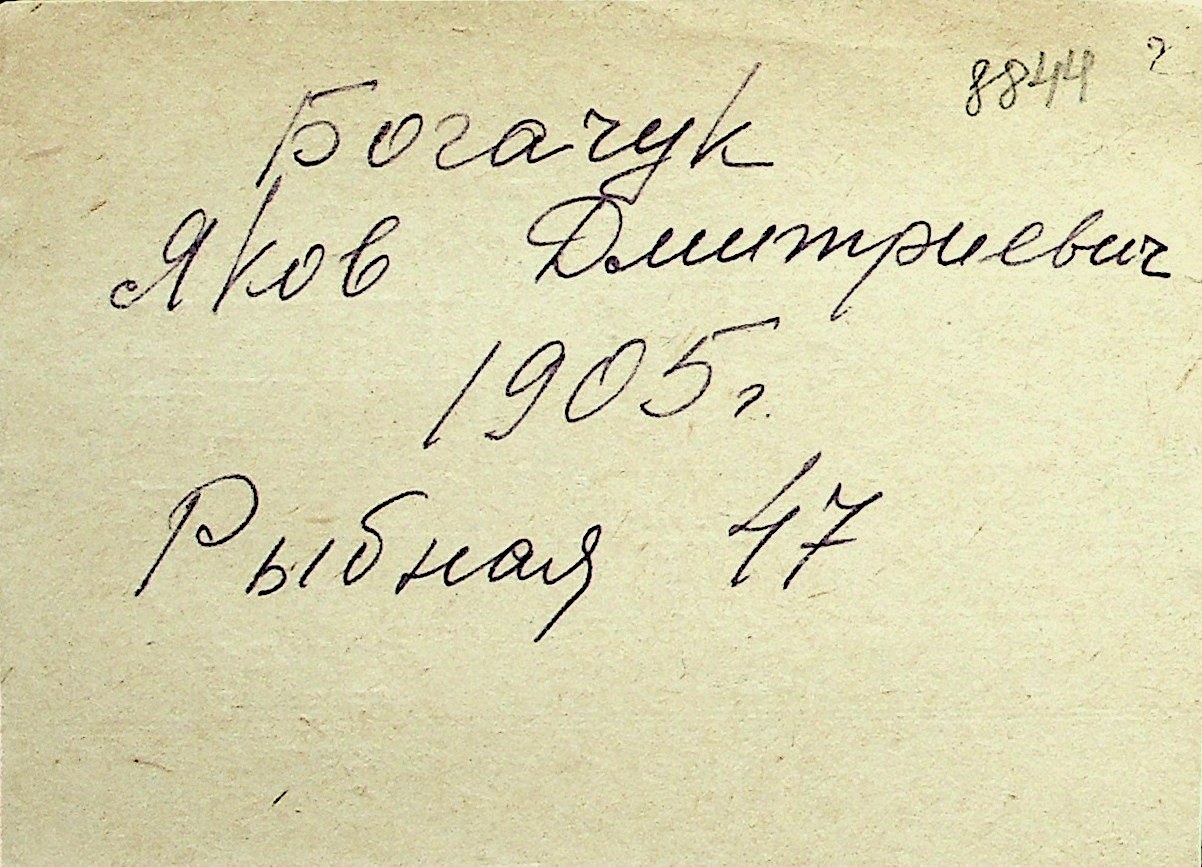 8844 ?
Богачук
Яков Дмитриевич
1905 г.
Рыбная 47